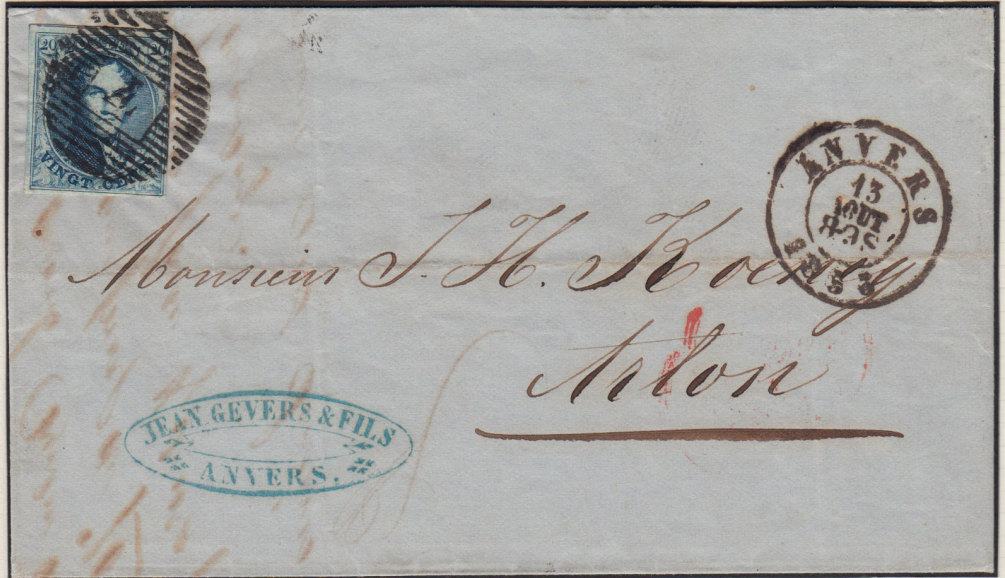 20 20
VINGT CENT
ANVERS
13
AOUT
8-9S
1853
Monsieur J. H. Koenig
Arlon
JEAN GEVERS & FILS
ANVERS.